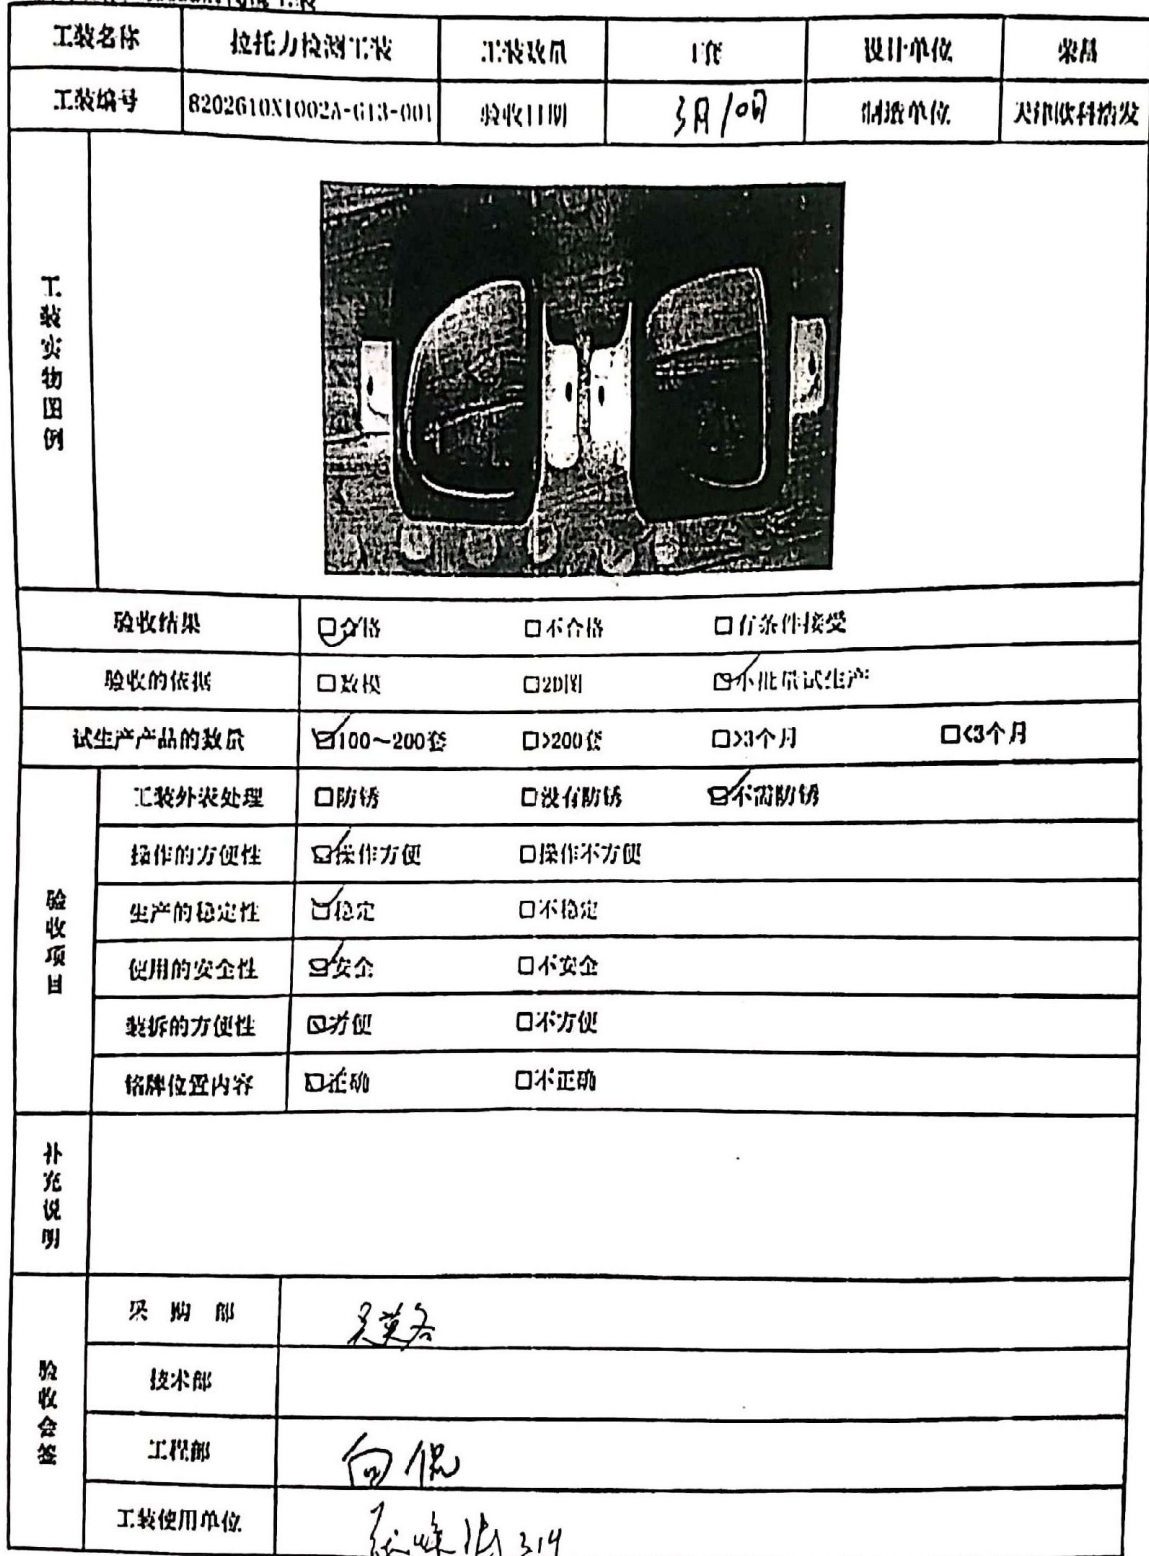 工装名称 拉托力检测工装 工装数量 1套 设计单位 荣昌
工装编号 8202610X1002A-G13-001 验收日期 3月10日 制造单位 天津欧科浩发
工装实物图例
验收结果 □合格 □不合格 □有条件接受
验收的依据 □数模 □2D图 □小批量试生产
试生产产品的数量 □100～200套 □>200套 □>3个月 □<3个月
验收项目
工装外表处理 □防锈 □没有防锈 □不需防锈
操作的方便性 □操作方便 □操作不方便
生产的稳定性 □稳定 □不稳定
使用的安全性 □安全 □不安全
装拆的方便性 □方便 □不方便
铭牌位置内容 □正确 □不正确
补充说明
验收会签
采购部
技术部
工程部 向侃
工装使用单位 3.14